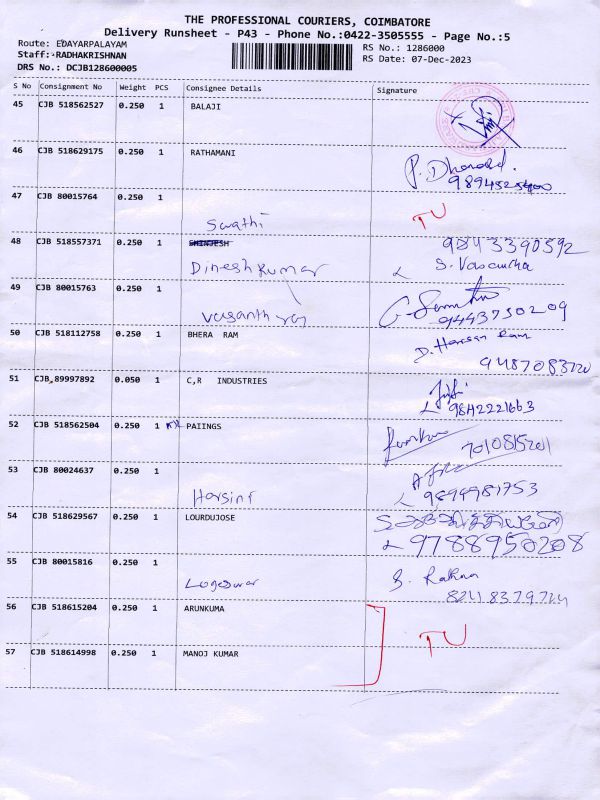 THE PROFESSIONAL COURIERS, COIMBATORE
Delivery Runsheet - P43 - Phone No.:0422-3505555 - Page No.:5
Route: EDAYARPALAYAM
RS No.: 1286000
Staff: RADHAKRISHNAN
RS Date: 07-Dec-2023
DRS No.: DCJB128600005
S No Consignment No Weight PCS Consignee Details Signature
45 CJB 518562527 0.250 1 BALAJI
46 CJB 518629175 0.250 1 RATHAMANI
47 CJB 80015764 0.250 1
Swathi TU
48 CJB 518557371 0.250 1 9843390592
Dinesh Kumar S. Vasantha
49 CJB 80015763 0.250 1
Vasanth raj 9443730209
50 CJB 518112758 0.250 1 BHERA RAM
9487083720
51 CJB 89997892 0.050 1 C,R INDUSTRIES
9842221663
52 CJB 518562504 0.250 1 PAIINGS
7010815201
53 CJB 80024637 0.250 1
Harsini 9894981753
54 CJB 518629567 0.250 1 LOURDUJOSE
9788950208
55 CJB 80015816 0.250 1
Logeswar
56 CJB 518615204 0.250 1 ARUNKUMA
TU
57 CJB 518614998 0.250 1 MANOJ KUMAR